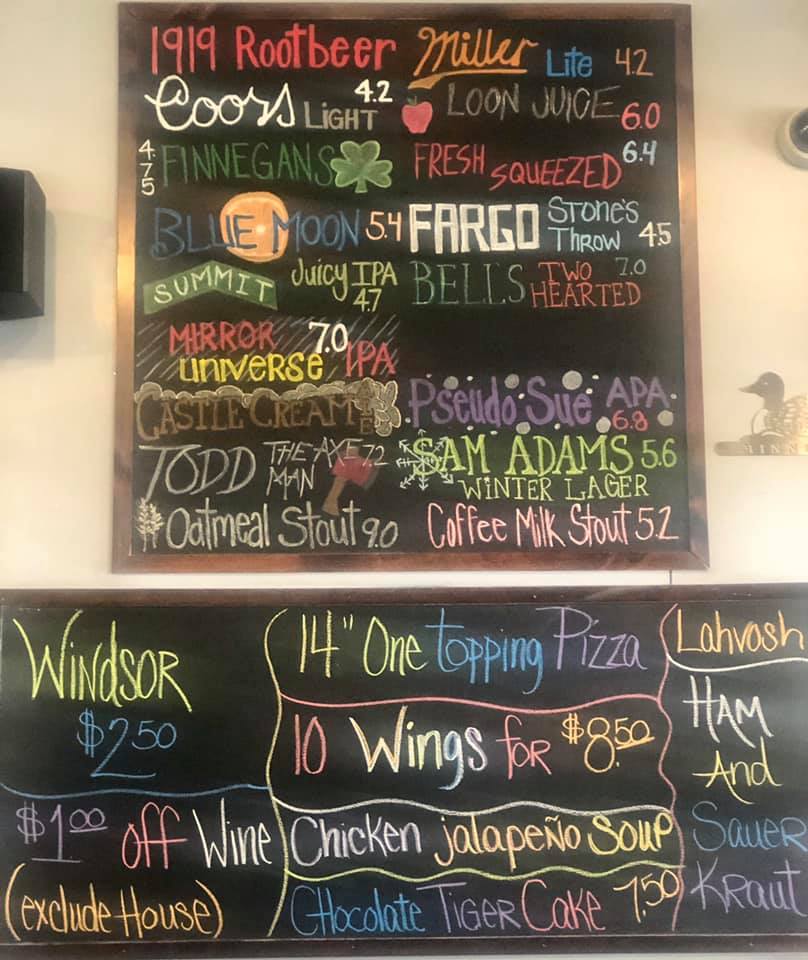 1919 Rootbeer
Miller Lite 4.2
Coors LIGHT 4.2
LOON JUICE 6.0
4.75 FINNEGANS
FRESH SQUEEZED 6.4
BLUE MOON 5.4
FARGO STONE'S THROW 4.5
SUMMIT Juicy IPA 4.7
BELLS TWO HEARTED 7.0
MIRROR UNIVERSE 7.0 IPA
CASTLE CREAM ALE
Pseudo Sue APA 6.8
TODD THE AXE MAN 7.2
SAM ADAMS 5.6
WINTER LAGER
Oatmeal Stout 9.0
Coffee Milk Stout 5.2
WINDSOR
$2.50
$1.00 off Wine
(exclude House)
14" One topping Pizza
10 Wings for $8.50
Chicken jalapeño Soup
CHocolate TIGER Cake 7.50
Lahvosh
HAM
And
Sauer
Kraut